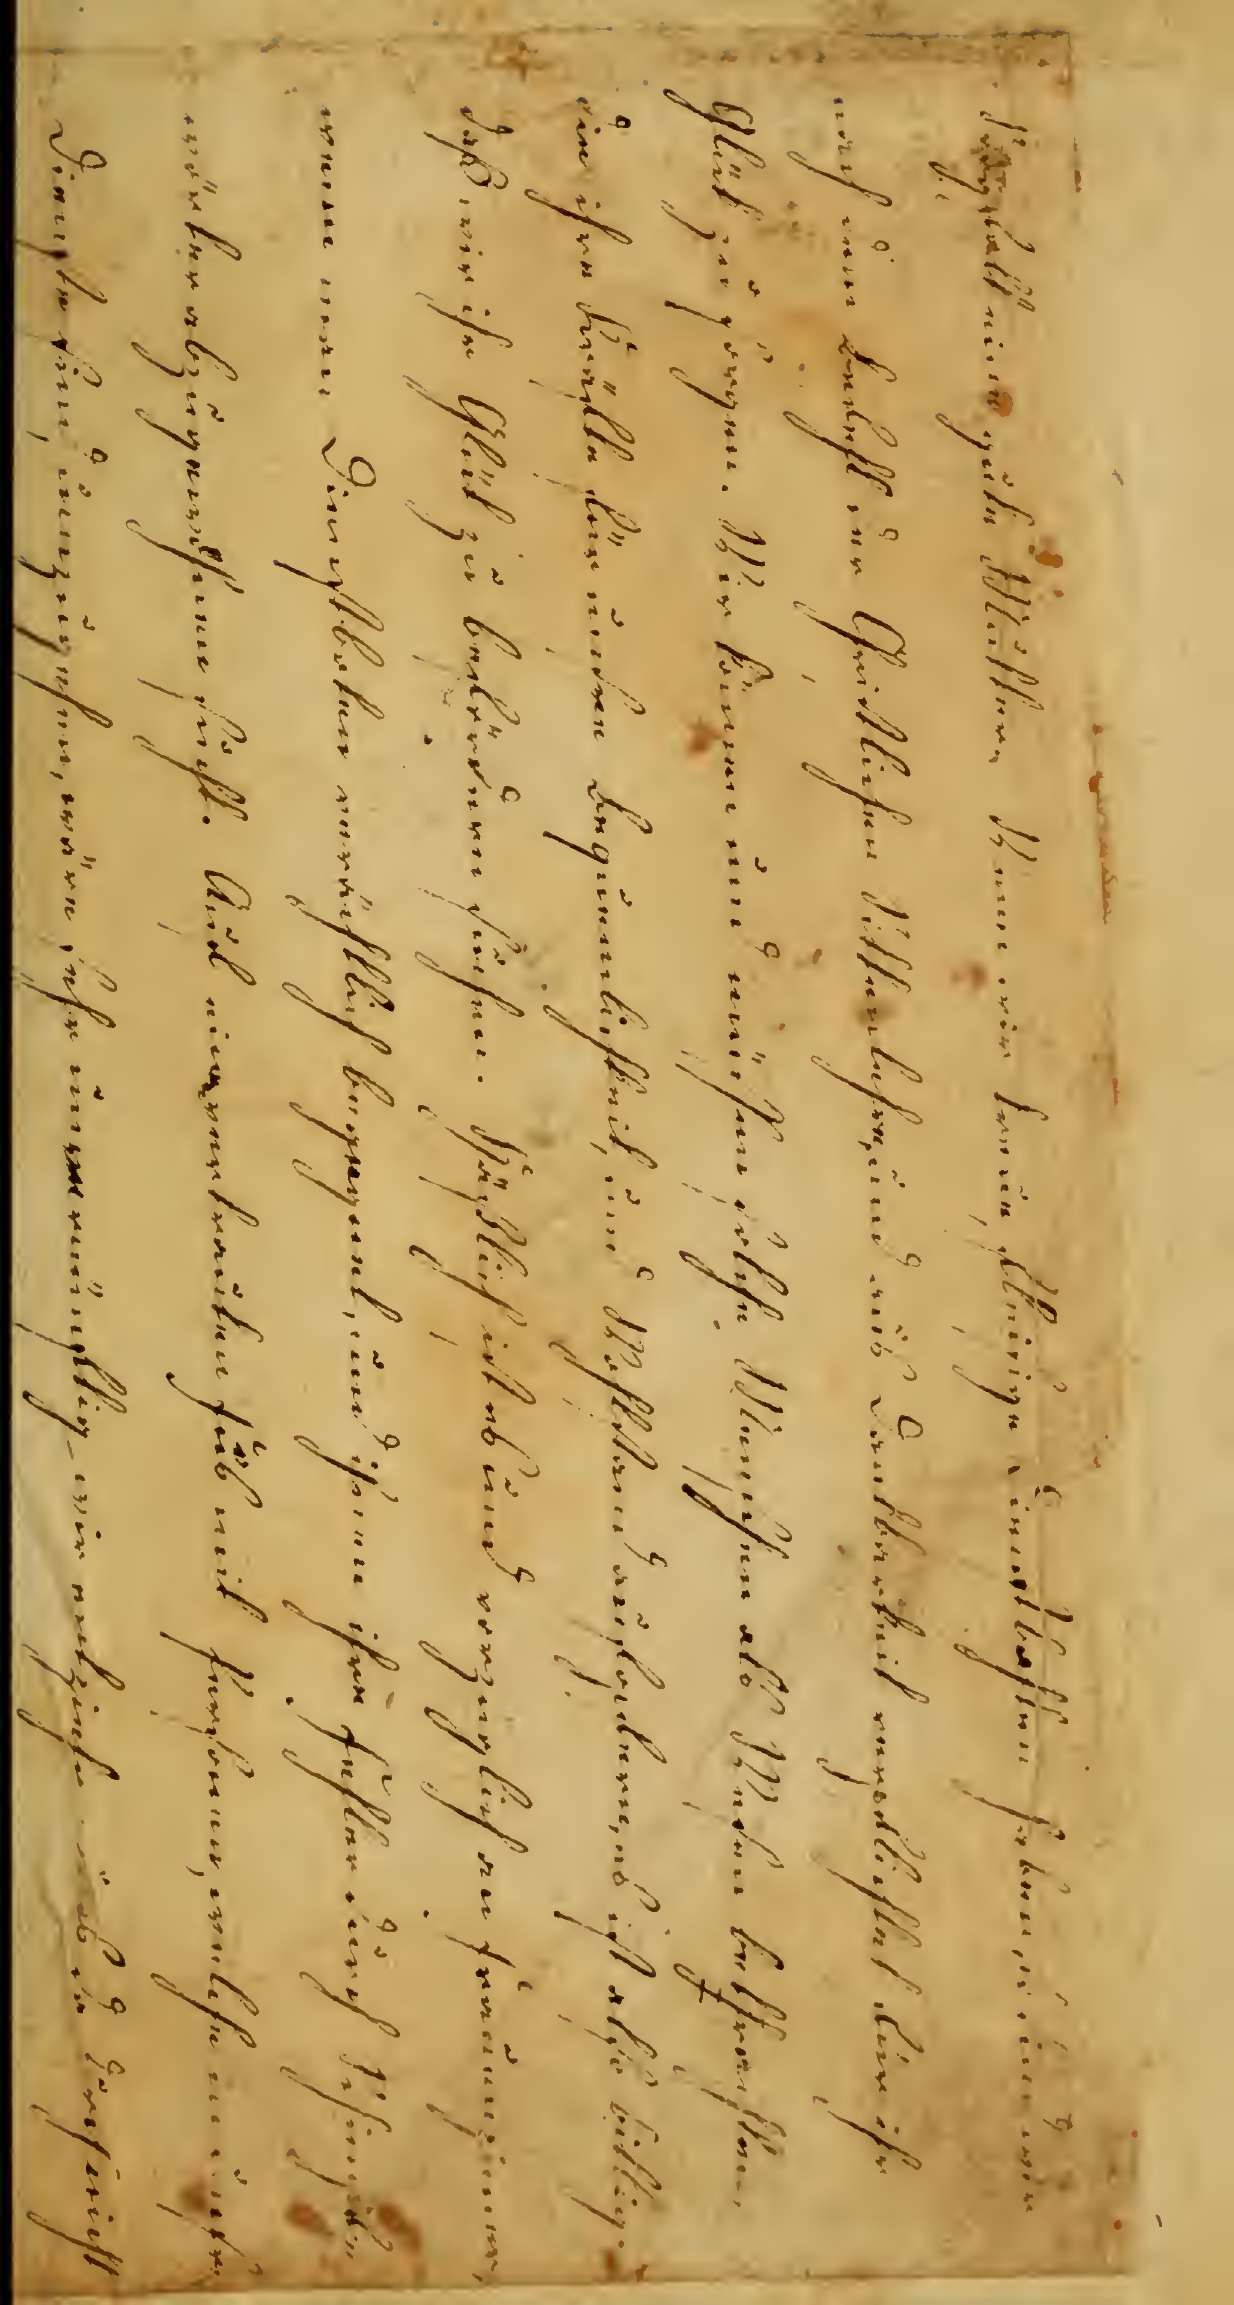 Sorgfalt einer guten Mutter. Wenn wir treue fleißige Dienstbothen haben, so sind wir
nach dem der Christlichen Sittenlehre, und aus Dankbarkeit verpflichtet für ihr
Glük zu sorgen. Wir können und müssen solche Menschen als Wesen betrachten,
die ihre Kräfte für unsere Bequemlichkeit, und Wohlstand aufopfern, es ist also billig.
daß wir ihr Glük zu befördern suchen. Häßlich ist es und vorzüglich an Frauenzimer,
wenn man Dienstboten verächtlich begegnet, und ihnen ihre Fehler durch Schimpf„
wörter abzugewöhnen sucht. Auf vertrauten Fuß mit Personen, welche in
Diensten sind, umzugehen, wäre sehr unvernünftig, wir nicht